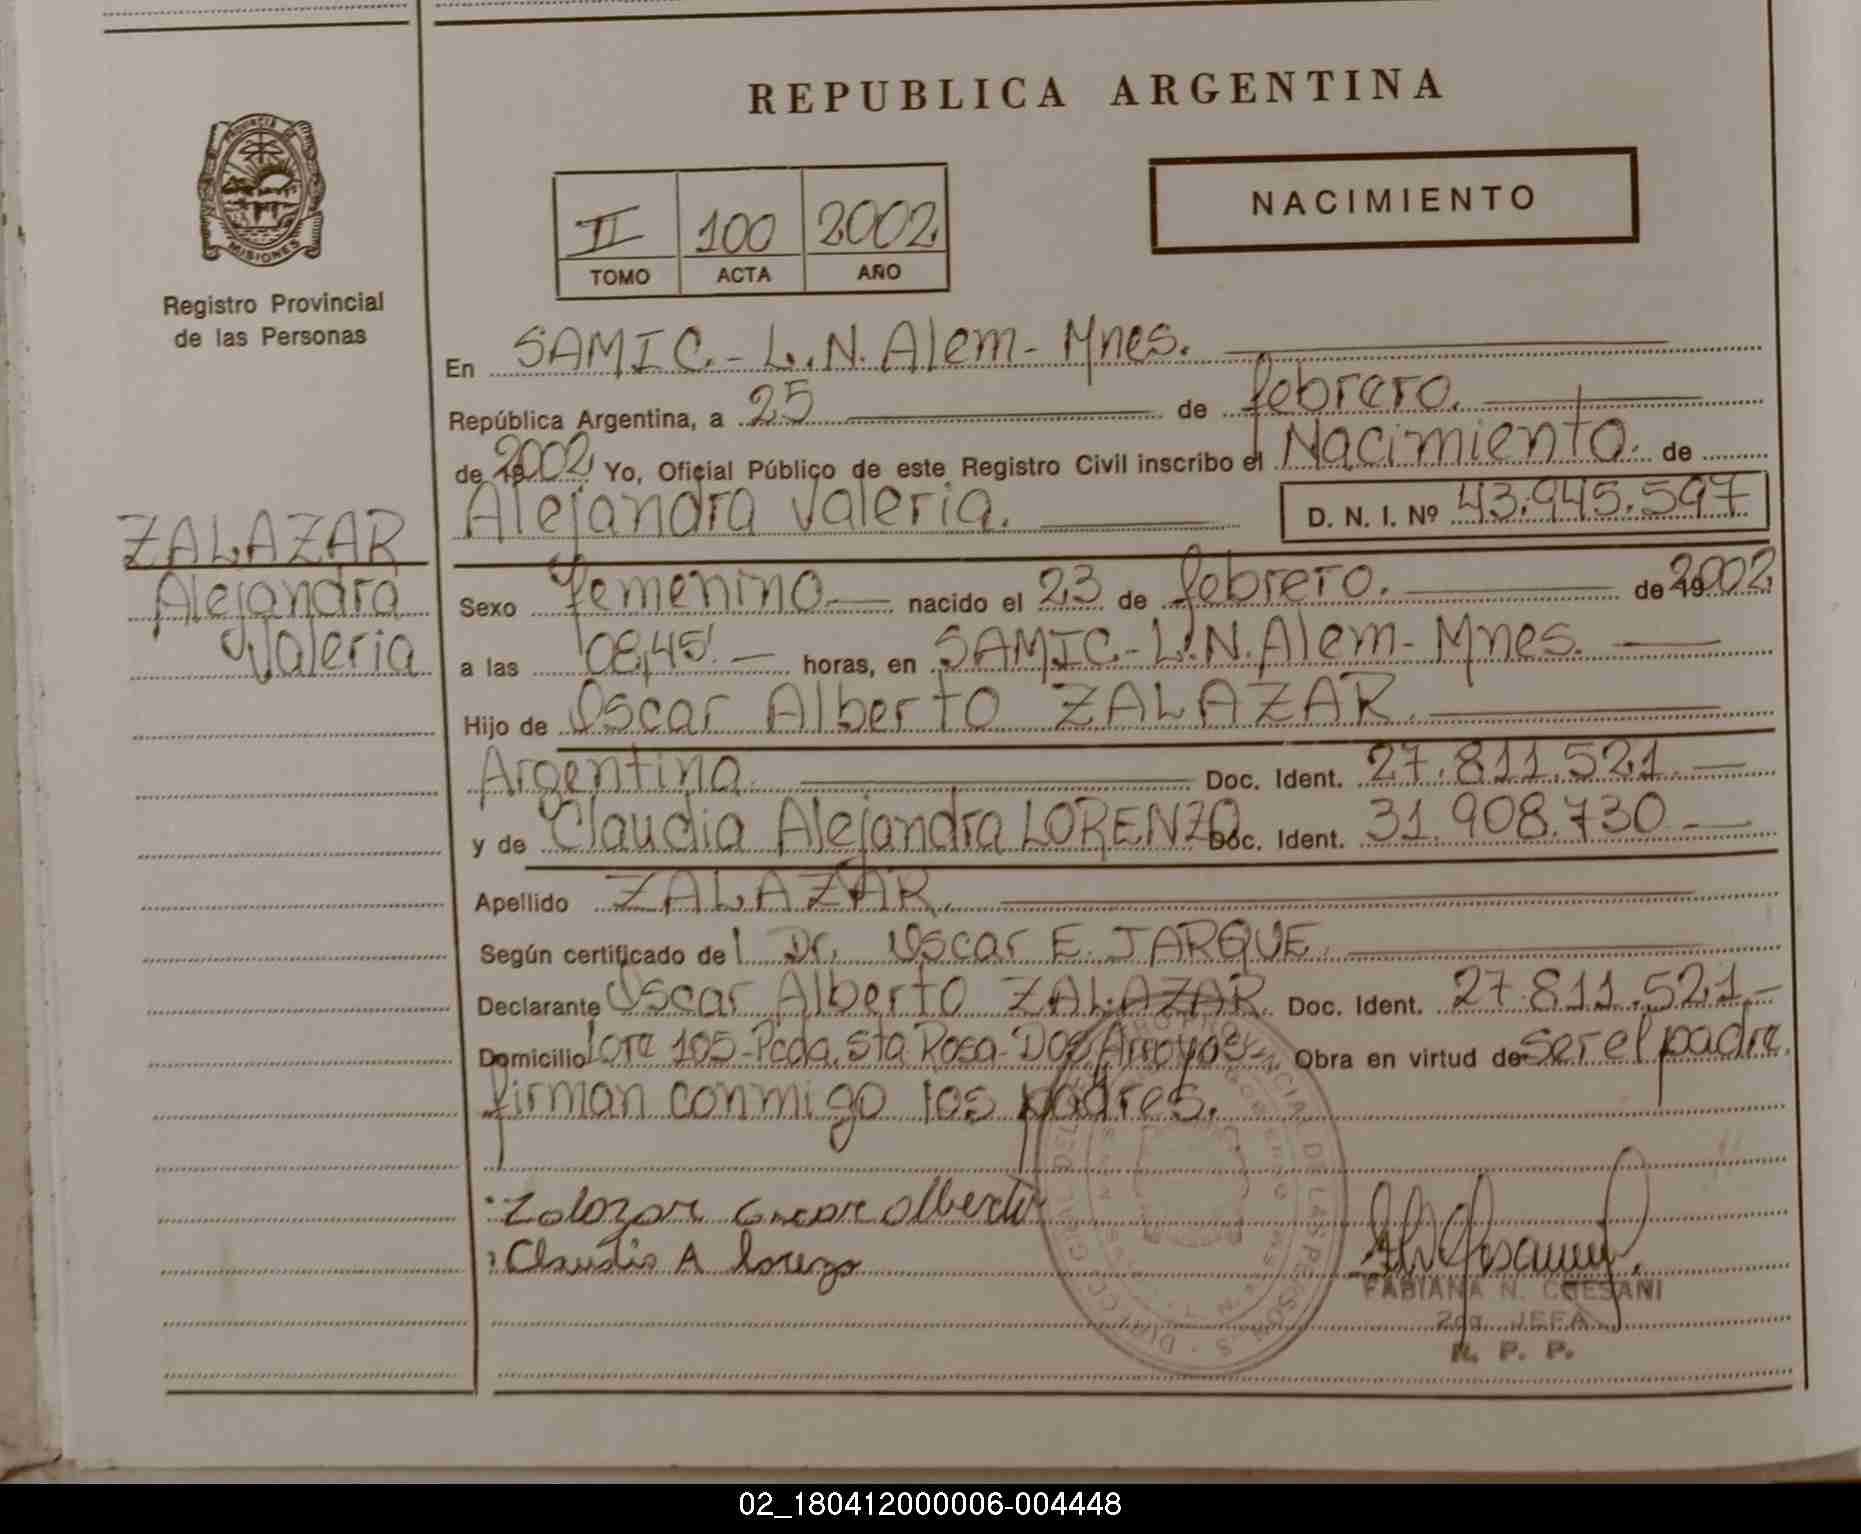 REPUBLICA ARGENTINA
PROVINCIA DE
MISIONES
Registro Provincial
de las Personas
II 100 2002
TOMO ACTA AÑO
NACIMIENTO
En SAMIC.-L.N.Alem-Mnes.
República Argentina, a 25 de febrero.
de 2002 Yo, Oficial Público de este Registro Civil inscribo el Nacimiento. de
Alejandra Valeria. D. N. I. Nº 43.945.597
ZALAZAR
Alejandra
Valeria
Sexo femenino nacido el 23 de febrero. de 19 2002
a las 08,45' horas, en SAMIC.-L.N.Alem-Mnes.
Hijo de Oscar Alberto ZALAZAR.
Argentina. Doc. Ident. 27.811.521.
y de Claudia Alejandra LORENZO Doc. Ident. 31.908.730
Apellido ZALAZAR.
Según certificado del Dr. Oscar E. JARQUE.
Declarante Oscar Alberto ZALAZAR Doc. Ident. 27.811.521.-
Domicilio lote 105-Pcda. Sta Rosa-Dos Arroyos- Obra en virtud de ser el padre.
firman conmigo los padres.
Zalazar oscar alberto
Claudia A lorenzo
FABIANA N. CHESANI
2da. JEFA
R. P. P.
02_180412000006-004448